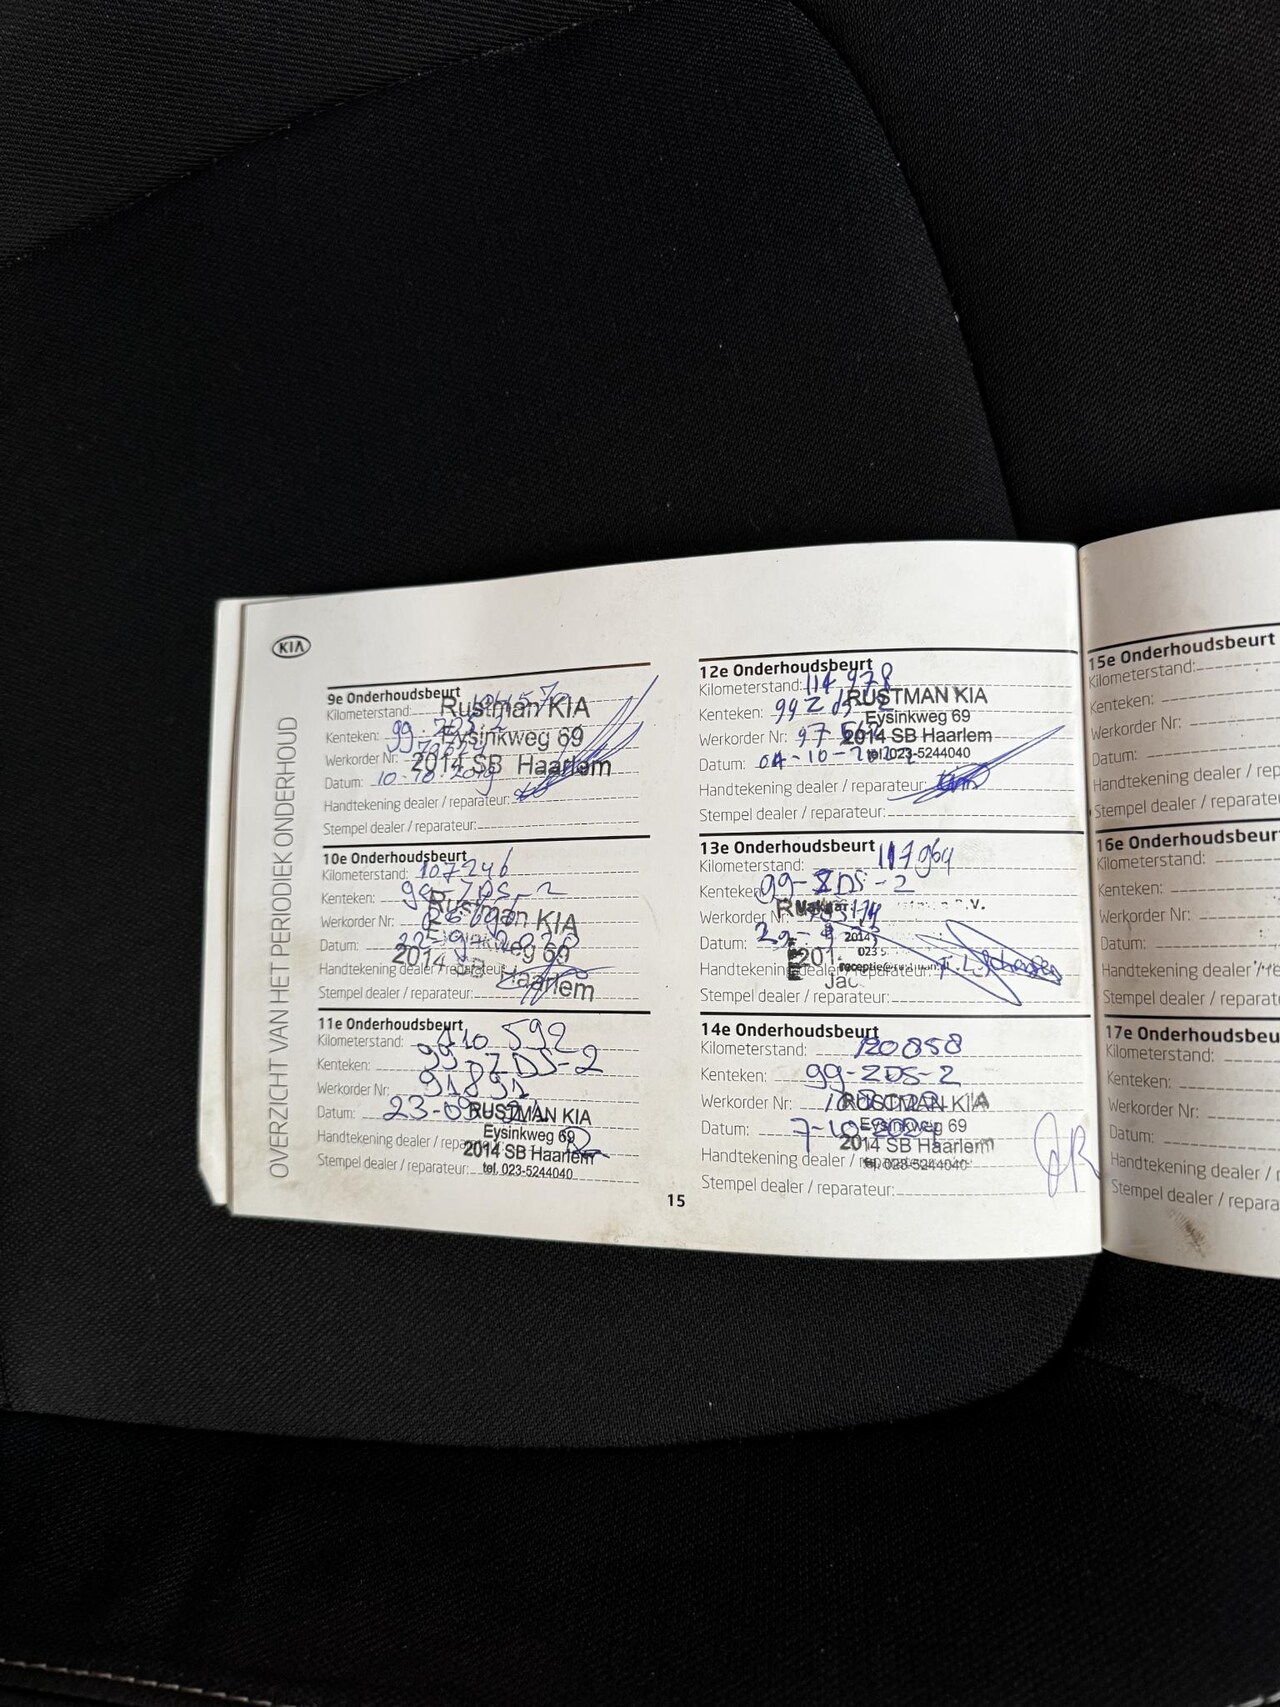 KIA
OVERZICHT VAN HET PERIODIEK ONDERHOUD
9e Onderhoudsbeurt
Kilometerstand:
Rustman KIA
Kenteken: 99
Eysinkweg 69
Werkorder Nr:
2014 SB Haarlem
Datum: 10-10-2019
Handtekening dealer / reparateur:
Stempel dealer / reparateur:
10e Onderhoudsbeurt
Kilometerstand: 107246
Kenteken: 99-ZDS-2
Rustman KIA
Werkorder Nr:
Eysinkweg 69
Datum:
2014 SB Haarlem
Handtekening dealer / reparateur:
Stempel dealer / reparateur:
11e Onderhoudsbeurt
Kilometerstand: 110 592
Kenteken: 99-ZDS-2
Werkorder Nr: 91891
Datum: 23-09-
RUSTMAN KIA
Eysinkweg 69
Handtekening dealer / reparateur:
2014 SB Haarlem
Stempel dealer / reparateur:
tel. 023-5244040
12e Onderhoudsbeurt
Kilometerstand: 114 978
RUSTMAN KIA
Kenteken: 99 ZDS-2
Eysinkweg 69
Werkorder Nr:
2014 SB Haarlem
Datum: 04-10-
tel. 023-5244040
Handtekening dealer / reparateur:
Stempel dealer / reparateur:
13e Onderhoudsbeurt
Kilometerstand: 117964
Kenteken: 99-ZDS-2
Werkorder Nr:
Datum:
Handtekening dealer / reparateur:
Stempel dealer / reparateur:
14e Onderhoudsbeurt
Kilometerstand: 120858
Kenteken: 99-ZDS-2
Werkorder Nr:
RUSTMAN KIA
Datum: 7-10-2024
Eysinkweg 69
2014 SB Haarlem
Handtekening dealer / reparateur:
tel. 023-5244040
Stempel dealer / reparateur:
15
15e Onderhoudsbeurt
Kilometerstand:
Kenteken:
Werkorder Nr:
Datum:
Handtekening dealer / rep
Stempel dealer / reparateu
16e Onderhoudsbeur
Kilometerstand:
Kenteken:
Werkorder Nr:
Datum:
Handtekening dealer /
Stempel dealer / reparat
17e Onderhoudsbeu
Kilometerstand:
Kenteken:
Werkorder Nr:
Datum:
Handtekening dealer /
Stempel dealer / repara